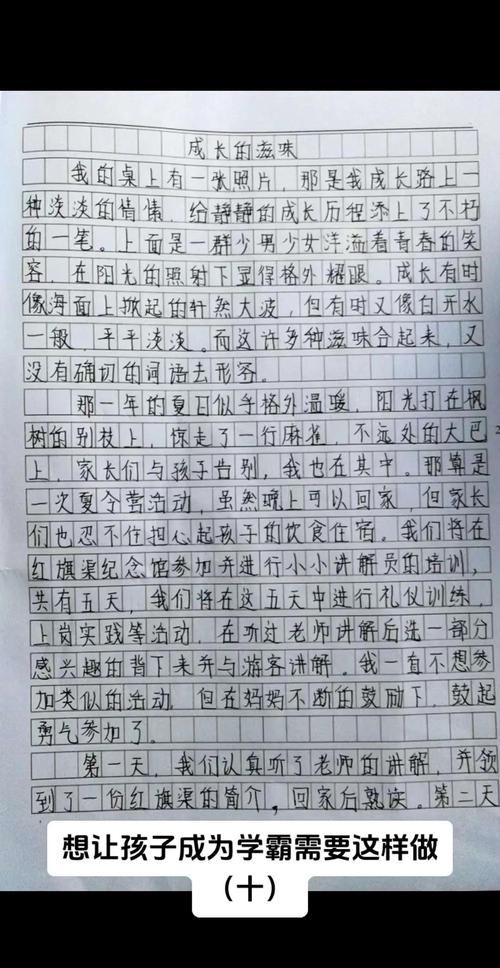 成长的滋味
我的桌上有一张照片,那是我成长路上一
种淡淡的情愫,给静静的成长历程添上了不朽
的一笔。上面是一群少男少女洋溢着青春的笑
容,在阳光的照射下显得格外耀眼。成长有时
像海面上掀起的轩然大波,但有时又像白开水
一般,平平淡淡。而这许多种滋味合起来,又
没有确切的词语去形容。
那一年的夏日似乎格外温暖,阳光打在枫
树的别枝上,惊走了一行麻雀,不远处的大巴
上,家长们与孩子告别,我也在其中。那算是
一次夏令营活动,虽然晚上可以回家,但家长
们也忍不住担心起孩子的饮食住宿。我们将在
红旗渠纪念馆参加并进行小小讲解员的培训,
共有五天,我们将在这五天中进行礼仪训练,
上岗实践等活动,在听过老师讲解后选一部分
感兴趣的背下来并与游客讲解。我一直不想参
加类似的活动,但在妈妈不断的鼓励下,鼓起
勇气参加了。
第一天,我们认真听了老师的讲解,并领
到了一份红旗渠的简介,回家后熟读。第二天
想让孩子成为学霸需要这样做
(十)